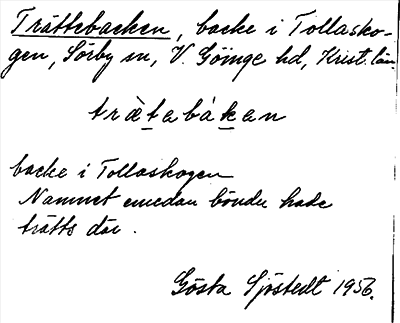 Trättebacken, backe i Tollasko-
gen, Sörby sn, V. Göinge hd, Krist. län.
trätebàken
backe i Tollaskogen
Namnet emedan bönder hade
trätts där.
Gösta Sjöstedt 1956.